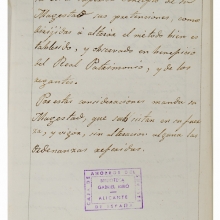 Magestad sus pretenciones, como
dirijidas à alterar el método bien es-
tablecido, y observado en beneficio
del Real Patrimonio, y de los
regantes.
Por estas consideraciones manda su
Magestad, que subsistan en su fuer-
za, y vigor, sin alteracion alguna las
ordenanzas referidas.
CAJA DE AHORROS DEL
BIBLIOTECA
GABRIEL MIRÓ
ALICANTE